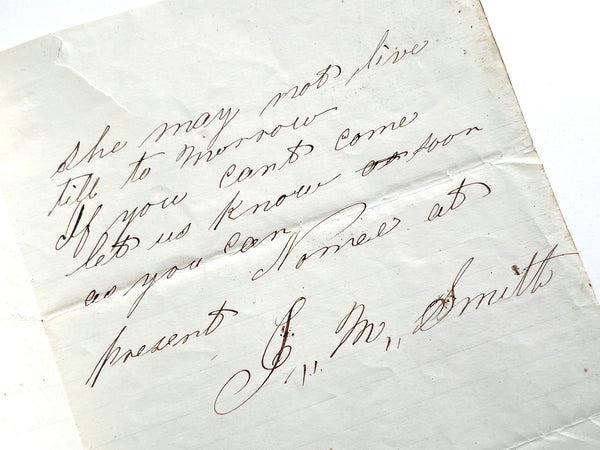 she may not live
till to Morrow
If you cant come
let us know as soon
as you can Nomee at
present
J,, M,, Smith